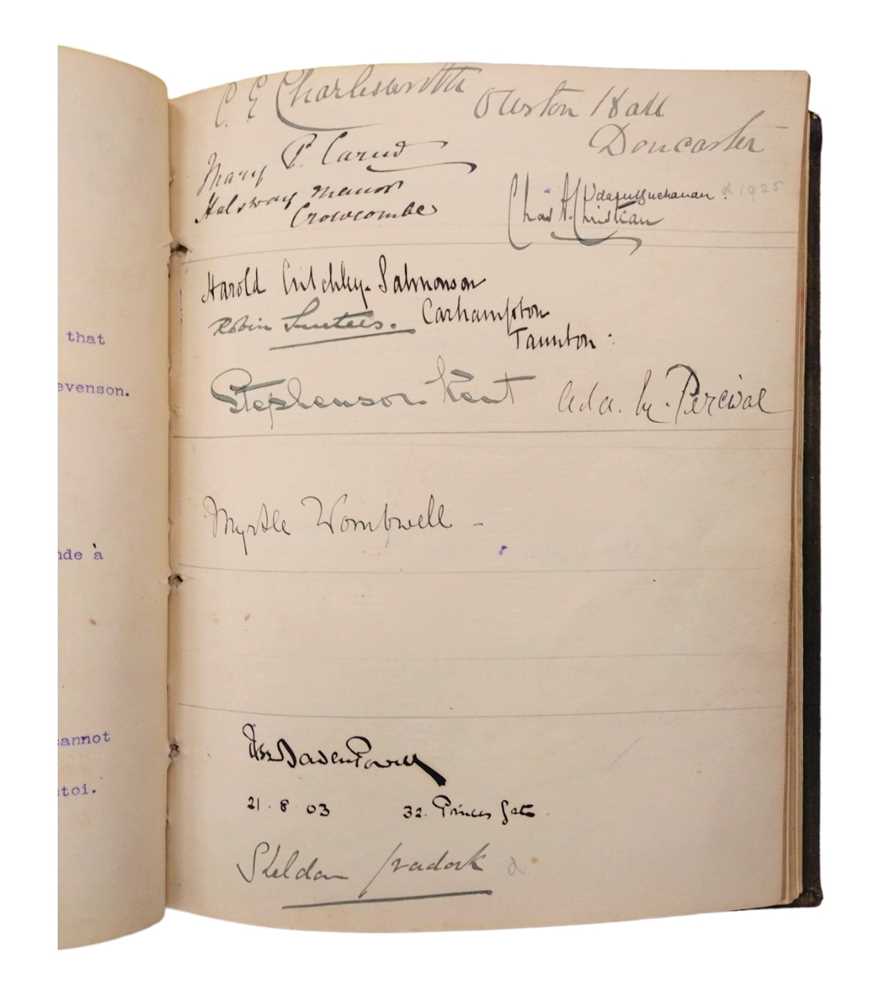 C. E Charlesworth
Owston Hall
Doncaster
Mary P. Carew
Halsway Manor
Crowcombe
Buchanan. d 1925
Chas A. Christian
Harold Critchley-Salmonson
Robin Surtees.
Carhampton
Taunton:
that
evenson.
Stephenson Kent
Ada. M. Percival
Myrtle Wombwell -
nde à
annot
toi.
Baden Powell
21. 8 03 32. Princes Gate
Sheldon Cradock d